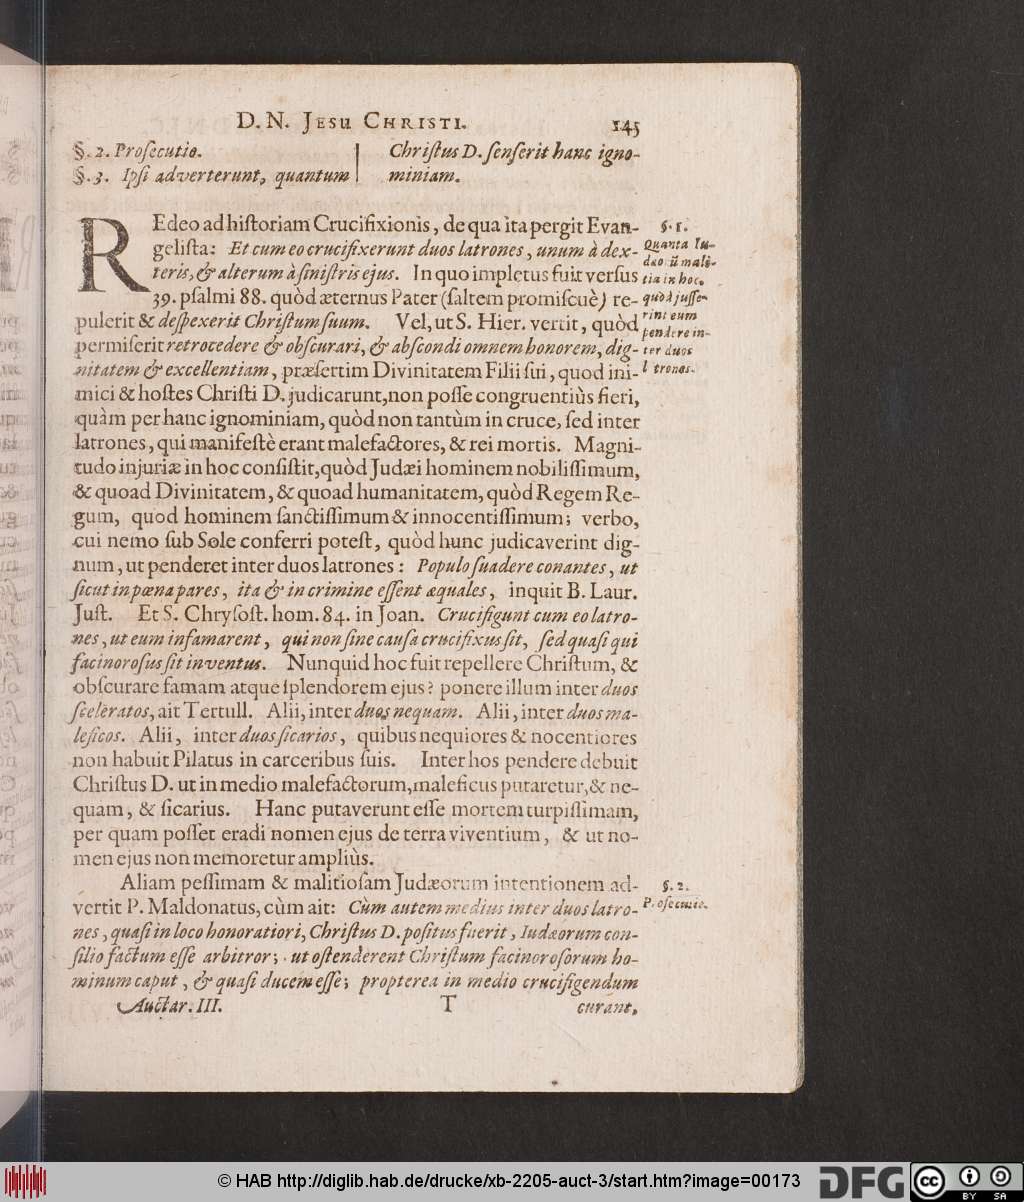 D. N. JESU CHRISTI. 145
§. 2. Prosecutio.
§. 3. Ipsi adverterunt, quantum
Christus D. senserit hanc igno-
miniam.
REdeo ad historiam Crucifixionis, de qua ita pergit Evan-
gelista: Et cum eo crucifixerunt duos latrones, unum à dex-
teris, & alterum à sinistris ejus. In quo impletus fuit versus
39. psalmi 88. quòd æternus Pater (saltem promiscuè) re-
pulerit & despexerit Christum suum. Vel, ut S. Hier. vertit, quòd
permiserit retrocedere & obscurari, & abscondi omnem honorem, dig-
nitatem & excellentiam, præsertim Divinitatem Filii sui, quod ini-
mici & hostes Christi D. judicarunt, non posse congruentiùs fieri,
quàm per hanc ignominiam, quòd non tantùm in cruce, sed inter
latrones, qui manifestè erant malefactores, & rei mortis. Magni-
tudo injuriæ in hoc consistit, quòd Judæi hominem nobilissimum,
& quoad Divinitatem, & quoad humanitatem, quòd Regem Re-
gum, quod hominem sanctissimum & innocentissimum; verbo,
cui nemo sub Sole conferri potest, quòd hunc judicaverint dig-
num, ut penderet inter duos latrones: Populo suadere conantes, ut
sicut in pœna pares, ita & in crimine essent æquales, inquit B. Laur.
Just. Et S. Chrysost. hom. 84. in Joan. Crucifigunt cum eo latro-
nes, ut eum infamarent, qui non sine causa crucifixus sit, sed quasi qui
facinorosus sit inventus. Nunquid hoc fuit repellere Christum, &
obscurare famam atque splendorem ejus? ponere illum inter duos
sceleratos, ait Tertull. Alii, inter duos nequam. Alii, inter duos ma-
leficos. Alii, inter duos sicarios, quibus nequiores & nocentiores
non habuit Pilatus in carceribus suis. Inter hos pendere debuit
Christus D. ut in medio malefactorum, maleficus putaretur, & ne-
quam, & sicarius. Hanc putaverunt esse mortem turpissimam,
per quam posset eradi nomen ejus de terra viventium, & ut no-
men ejus non memoretur ampliùs.
Aliam pessimam & malitiosam Judæorum intentionem ad-
vertit P. Maldonatus, cùm ait: Cùm autem medius inter duos latro-
nes, quasi in loco honoratiori, Christus D. positus fuerit, Iudæorum con-
silio factum esse arbitror; ut ostenderent Christum facinorosorum ho-
minum caput, & quasi ducem esse; propterea in medio crucifigendum
Auctar. III. T curant,
§. 1.
Quanta Iu-
dæorũ mali-
tia in hoc,
quòd jusse-
rint eum
pendere in-
ter duos
latrones.
§. 2.
Prosecutio.
© HAB http://diglib.hab.de/drucke/xb-2205-auct-3/start.htm?image=00173
DFG
cc
BY SA